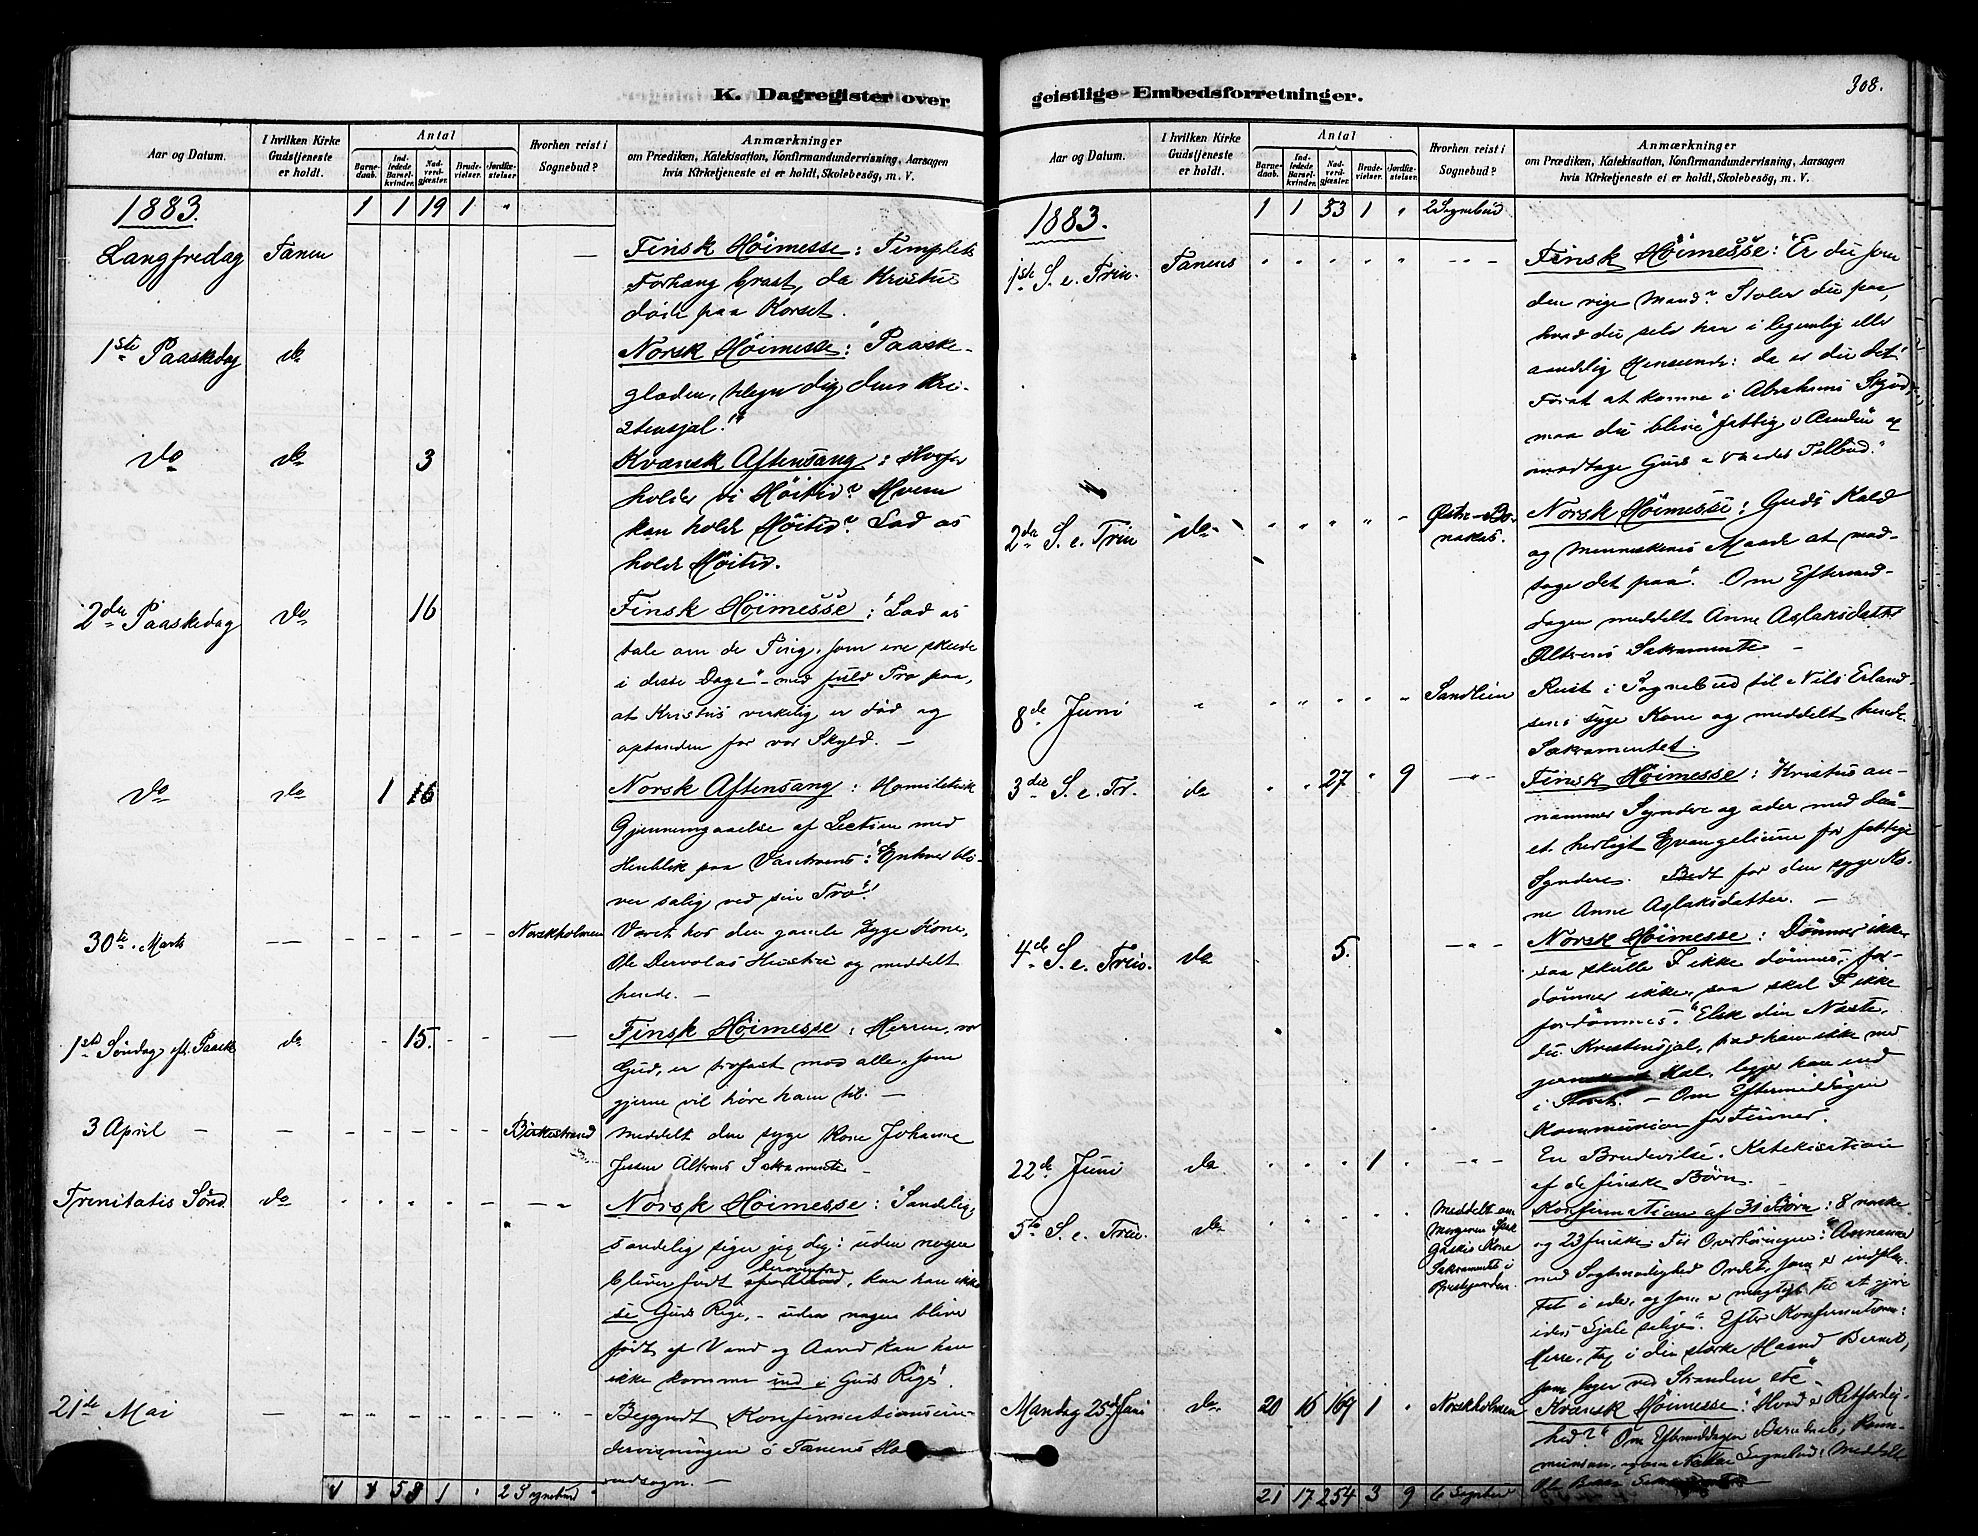 K. Dagregister over
geistlige Embedsforretninger.
308.
Aar og Datum.
I hvilken Kirke
Gudstjeneste
er holdt.
Antal
Barne-
daab.
Ind-
ledede
Barsel-
kvinder.
Nad-
verd-
gjæster.
Brude-
vielser.
Jordfæ-
stelser.
Hvorhen reist i
Sognebud?
Anmærkninger
om Prædiken, Katekisation, Konfirmandundervisning, Aarsagen
hvis Kirketjeneste ei er holdt, Skolebesøg, m. V.
1883. 1 1 19 1 "
Langfredag Tanen — Finsk Høimesse: Templets
Forhæng brast, da Kristus
døde paa Korset.
1ste Paaskedag do Norsk Høimesse: "Paaske-
glæden, tilegn dig den Kri-
stensjæl!"
do do 3 Kvænsk Aftensang: Hvorfor
holder vi Høitid? Hvem
kan holde Høitid? Lad os
holde Høitid.
2den Paaskedag do 16 Finsk Høimesse: "Lad os
tale om de Ting, som ere skeede
i disse Dage" - med fuld Tro paa,
at Kristus virkelig er død og
opstanden for vor Skyld. —
do do 1 16 Norsk Aftensang: Homiletisk
Gjennemgaaelse af Lectien med
Henblik paa : "Enhver bli-
ver salig ved sin Tro".
30te Marts — — Norskholmen Været hos den gamle syge Kone,
Ole Hustru og meddelt
hende. —
1ste Søndag eft. Paaske do 15. — Finsk Høimesse: Herren, vor
Gud, er trofast mod alle, som
gjerne vil høre ham til. —
3 April — — Birkestrand meddelt den syge Kone Johanne
Jessen Alterens Sakramente —
Trinitatis Sønd. do Norsk Høimesse: "Sandelig,
sandelig siger jeg dig: uden nogen
bliver født herovenfra, kan han ikke
se Guds Rige, - uden nogen blive
født af Vand og Aand kan han
ikke komme ind i Guds Rige".
21de Mai — — Begyndt Konfirmationsun-
dervisningen i Tanens
sogn. —
58 1 " 2 Sognebud
Aar og Datum.
I hvilken Kirke
Gudstjeneste
er holdt.
Antal
Barne-
daab.
Ind-
ledede
Barsel-
kvinder.
Nad-
verd-
gjæster.
Brude-
vielser.
Jordfæ-
stelser.
Hvorhen reist i
Sognebud?
Anmærkninger
om Prædiken, Katekisation, Konfirmandundervisning, Aarsagen
hvis Kirketjeneste ei er holdt, Skolebesøg, m. V.
1883. 1 1 53 1 " 2 Sognebud
1ste S. e. Trin. Tanens Finsk Høimesse: "Er du som
den rige Mand? Stoler du paa,
hvad du selv har i legemlig eller
aandelig Henseende: da er du det!
Forat at komme i Abrahams Skjød,
maa du blive "fattig i Aanden" og
modtage Guds Tilbud."
2den S. e. Trin do Østre Norsk Høimesse: Guds Kald
og Menneskenes Maade at mod-
tage det paa". Om Eftermid-
dagen meddelt Anne Aslaksdatter
Alterens Sakramente —
8de Juni " Sandlien Reist i Sognebud til Nils Erland-
sens syge Kone og meddelt hende
Sakramentet.
3die S. e. Tr. do 27 " 9 Finsk Høimesse: "Kristus an-
nammer Syndere og æder med dem" -
et herligt Evangelium for fattige
Syndere. Bedt for den syge Ko-
ne Anne Aslaksdatter. —
4de S. e. Trin. do 5. Norsk Høimesse: Dømmer ikke
saa skulle I ikke dømmes; for-
dømmer ikke, saa skal I ikke
fordømmes. "Elsk din Næste,
du Kristensjæl, træd ham ikke med
jern Hæl, ligger han end
i Støvet." — Om Eftermiddagen
Kommunion for Finner.
22de Juni do 1 En Brudevielse. Katekisation
af de finske Børn.
5te S. e. Trin. do Meddelt om
Morgenen
Kone
Sakramente i
Præstgaarden. Konfirmation af 31 Børn: 8 norske
og 23 finske. Til Overhøringen: "Annammer
med Sagtmodighed Ordet, som er indplan-
tet i eder, og som er mægtigt til at gjøre
eders Sjæle salige". Efter Konfirmationen:
Herre, tag i din stærke Haand Barnet,
som leger ved Stranden etc"
Mandag 25de Juni do 20 16 169 1 " Norskholmen Kvænsk Høimesse: "Hvad er Retfærdig-
hed?" Om Eftermiddagen Barnedaab, Kom-
munion, Sognebud, Meddelt
Ole
21 17 254 3 9 6 Sognebud